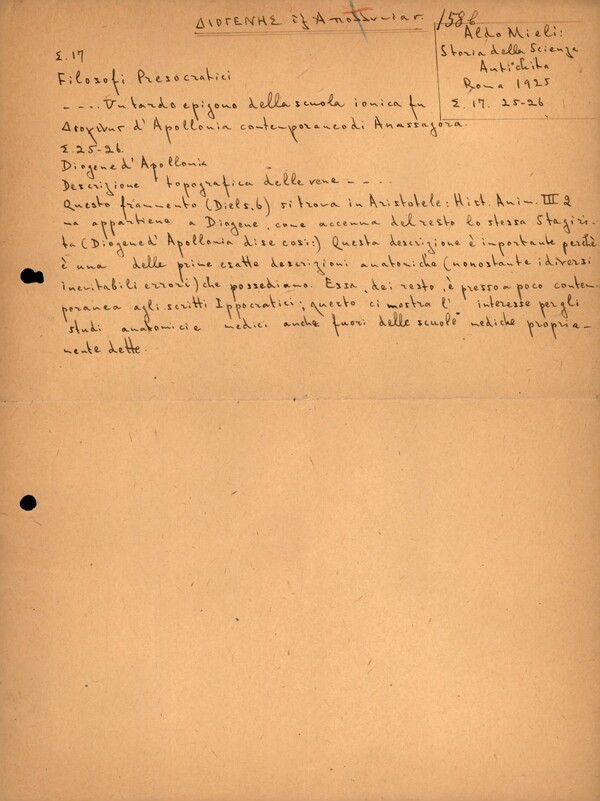 ΔΙΟΓΕΝΗΣ ἐξ Ἀπολλωνίας.
158b
Aldo Mieli:
Storia della Scienza
Antichita
Roma 1925
Σ. 17. 25-26
Σ. 17
Filosofi Presocratici
- - - . . Un tardo epigono della scuola ionica fu
d'Apollonia contemporaneo di Anassagora.
Σ. 25-26.
Diogene d'Apollonia
Descrizione topografica delle vene - - . .
Questo frammento (Diels. 6) si trova in Aristotele: Hist. Anim. III 2
ma appartiene a Diogene, come accenna del resto lo stessa Stagiri-
ta (Diogene d'Apollonia dise cosi:) Questa descrizione è importante perchè
è una delle prime esatte descrizioni anatomiche (nonostante i diversi
inevitabili errori) che possediamo. Essa, dei resto, è presso a poco contem-
poranea agli scritti Ippocratici; questo ci mostra l' interesse per gli
studi anatomici e medici anche fuori delle scuole mediche propria-
mente dette.